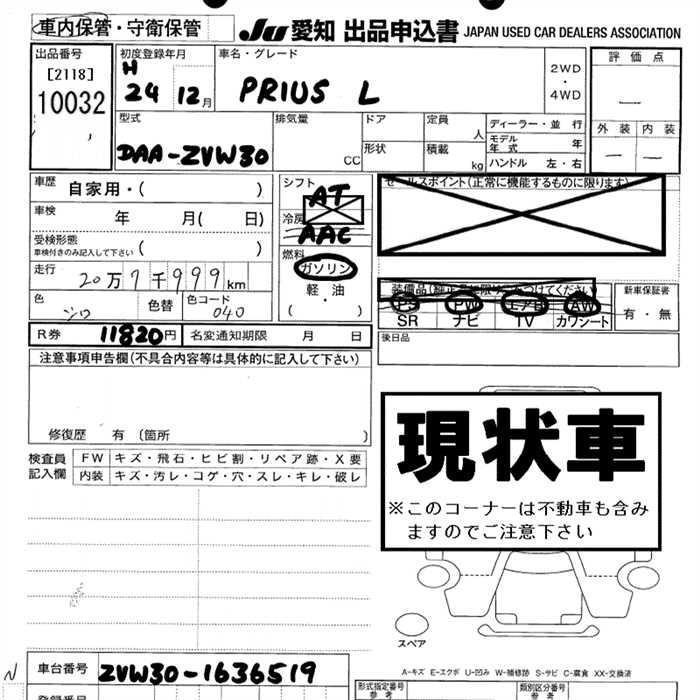 車内保管・守衛保管 JU 愛知 出品申込書 JAPAN USED CAR DEALERS ASSOCIATION
出品番号
[2118]
10032
初度登録年月
H
24 12月
車名・グレード
PRIUS L
2WD
・
4WD
評価点
—
外装 内装
— —
型式
DAA-ZVW30
排気量
CC
ドア
形状
定員
人
積載
kg
ディーラー・並行
モデル年式 年
ハンドル 左・右
車歴
自家用・( )
車検
年 月( 日)
受検形態
車検付きのみ記入して下さい ( )
走行
20万7千999km
色
シロ
色替
色コード
040
シフト
AT
冷房
AAC
燃料
ガソリン
軽・油
( )
セールスポイント(正常に機能するものに限ります)
PS PW エアB AW
SR ナビ TV カワシート
新車保証書
有・無
R券 11820円 名変通知期限 月 日
後日品
注意事項申告欄(不具合内容等は具体的に記入して下さい)
修復歴 有 〔箇所 〕
検査員記入欄
FW キズ・飛石・ヒビ割・リペア跡・X要
内装 キズ・汚レ・コゲ・穴・スレ・キレ・破レ
現状車
※このコーナーは不動車も含み
ますのでご注意下さい
スペア
A-キズ E-エクボ U-凹み W-補修跡 S-サビ C-腐食 XX-交換済
N
車台番号 ZVW30-1636519
形式指定番号
参考
類別区分番号
参考
登録番号